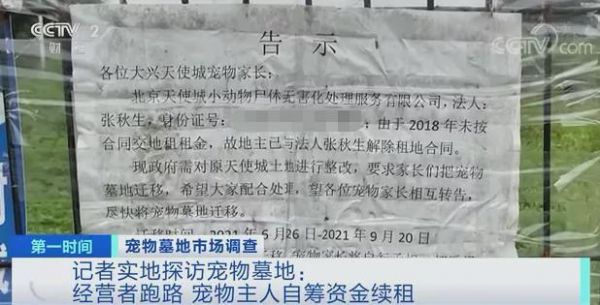 CCTV 2
财经
CCTV.com
告 示
各位大兴天使城宠物家长：
北京天使城小动物尸体无害化处理服务有限公司，法人：
张秋生，身份证号：
由于2018年未按
合同交地租租金，故地主已与法人张秋生解除租地合同。
现政府需对原天使城土地进行整改，要求家长们把宠物
墓地迁移，希望大家配合处理，望各位宠物家长相互转告，
尽快将宠物墓地迁移。
2021年9月20
第一时间
宠物墓地市场调查
记者实地探访宠物墓地：
经营者跑路 宠物主人自筹资金续租